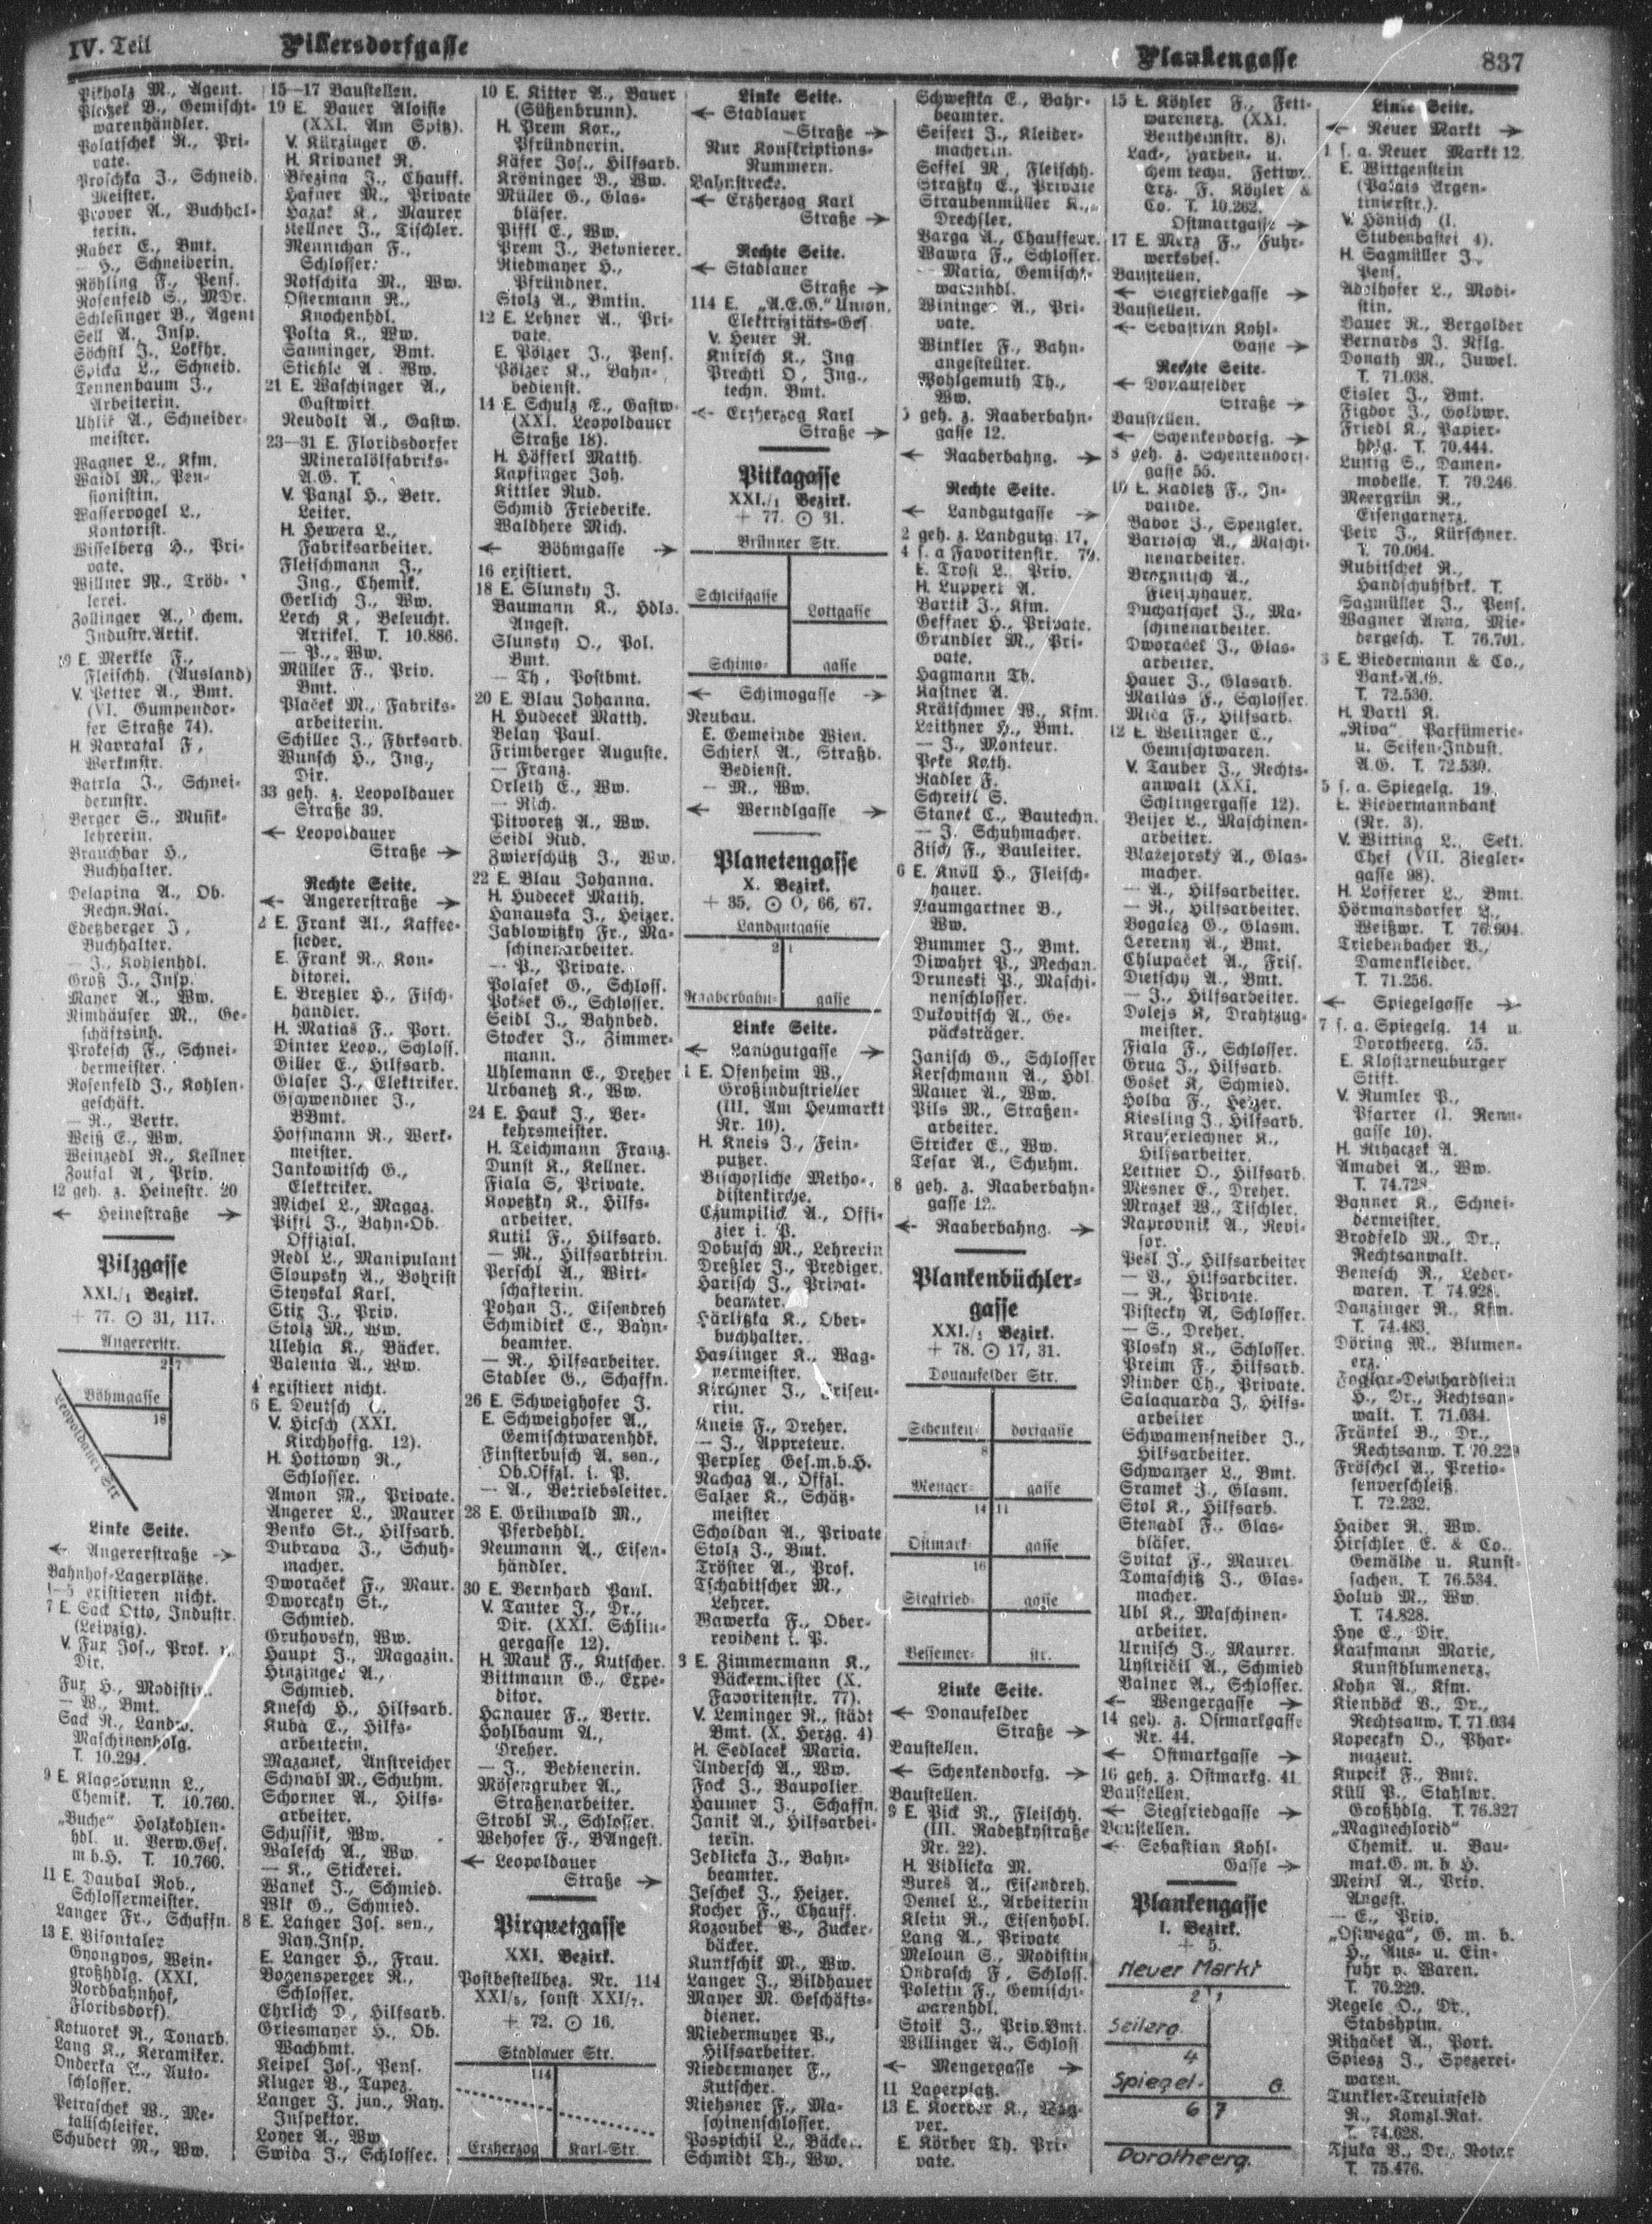 IV. Teil
Pillersdorfgasse
Plankengasse
837
Pikholz M., Agent.
Plozek B., Gemischt-
warenhändler.
Polatschek R., Pri-
vate.
Proschka J., Schneid.
Meister.
Prover A., Buchhal-
terin.
Raber E., Bmt.
— H., Schneiderin.
Röhling F., Pens.
Rosenfeld S., MDr.
Schlesinger B., Agent
Sell A., Insp.
Söchstl J., Lokfhr.
Spicka L., Schneid.
Tennenbaum J.,
Arbeiterin.
Uhlik A., Schneider-
meister.
Wagner L., Kfm.
Waidl M., Pen-
sionistin.
Wasservogel L.,
Kontorist.
Wisselberg H., Pri-
vate.
Willner M., Tröd-
lerei.
Zollinger A., chem.
Industr.Artik.
10 E. Merkle F.,
Fleischh. (Ausland)
V. Petter A., Bmt.
(VI. Gumpendor-
fer Straße 74).
H. Navratal F.,
Werkmstr.
Batrla J., Schnei-
dermstr.
Berger S., Musik-
lehrerin.
Brauchbar H.,
Buchhalter.
Delapina A., Ob.
Rechn.Rat.
Edetzberger J.,
Buchhalter.
— J., Kohlenhdl.
Groß J., Insp.
Mayer A., Ww.
Nimhäuser M., Ge-
schäftsinh.
Prokesch F., Schnei-
dermeister.
Rosenfeld J., Kohlen-
geschäft.
— R., Vertr.
Weiß E., Ww.
Weinzedl R., Kellner
Zoufal A., Priv.
12 geh. z. Heinestr. 20
← Heinestraße →
Pilzgasse
XXI./1 Bezirk.
+ 77. ⊙ 31, 117.
Angererstr.
2 7
Böhmgasse
18
Leopoldauer Str
Linke Seite.
← Angererstraße →
Bahnhof-Lagerplätze.
1—5 existieren nicht.
7 E. Sack Otto, Industr.
(Leipzig).
V. Fux Jos., Prok. u.
Dir.
Fux H., Modistin.
— W., Bmt.
Sack R., Landw.
Maschinenhdlg.
T. 10.294.
9 E. Klagsbrunn L.,
Chemik. T. 10.760.
„Buche“ Holzkohlen-
hdl. u. Verw.Ges.
m.b.H. T. 10.760.
11 E. Daubal Rob.,
Schlossermeister.
Langer Fr., Schaffn.
13 E. Bisontalez
Gyongyos, Wein-
großhdlg. (XXI.
Nordbahnhof,
Floridsdorf).
Kotuorek R., Tonarb.
Lang K., Keramiker.
Onderka L., Auto-
schlosser.
Petraschek W., Me-
tallschleifer.
Schubert M., Ww.
15—17 Baustellen.
19 E. Bauer Aloisie
(XXI. Am Spitz).
V. Kürzinger G.
H. Krivanek R.
Brezina J., Chauff.
Hafner M., Private
Hazak K., Maurer
Kellner J., Tischler.
Mennichan F.,
Schlosser.
Notschika M., Ww.
Ostermann R.,
Knochenhdl.
Polta K., Ww.
Sanninger, Bmt.
Stiehle A. Ww.
21 E. Waschinger A.,
Gastwirt.
Neudolt A., Gastw.
23—31 E. Floridsdorfer
Mineralölfabriks-
A.G. T.
V. Panzl H., Betr.
Leiter.
H. Hewera L.,
Fabriksarbeiter.
Fleischmann J.,
Ing., Chemik.
Gerlich J., Ww.
Lerch K., Beleucht.
Artikel. T. 10.886.
— P., Ww.
Müller F., Priv.
Bmt.
Plaček M., Fabriks-
arbeiterin.
Schiller J., Fbrksarb.
Wunsch H., Ing.,
Dir.
33 geh. z. Leopoldauer
Straße 39.
← Leopoldauer
Straße →
Rechte Seite.
← Angererstraße →
2 E. Frank Al., Kaffee-
sieder.
E. Frank R., Kon-
ditorei.
E. Breßler H., Fisch-
händler.
H. Matias F., Port.
Dinter Leop., Schloss.
Giller E., Hilfsarb.
Glaser J., Elektriker.
Gschwendner J.,
BBmt.
Hoffmann R., Werk-
meister.
Jankowitsch G.,
Elektriker.
Michel L., Magaz.
Piffl J., Bahn-Ob.
Offizial.
Redl L., Manipulant
Sloupsky A., Bohrist
Steyskal Karl.
Stix J., Priv.
Stolz M., Ww.
Ulehla K., Bäcker.
Valenta A., Ww.
4 existiert nicht.
6 E. Deutsch C.
V. Hirsch (XXI.
Kirchhoffg. 12).
H. Hottowy R.,
Schlosser.
Amon M., Private.
Angerer L., Maurer
Benko St., Hilfsarb.
Dubrava J., Schuh-
macher.
Dworaček F., Maur.
Dworczky St.,
Schmied.
Gruhovsky, Ww.
Haupt J., Magazin.
Hinzinger A.,
Schmied.
Knesch H., Hilfsarb.
Kuba E., Hilfs-
arbeiterin.
Mazanek, Anstreicher
Schnabl M., Schuhm.
Schorner A., Hilfs-
arbeiter.
Schussik, Ww.
Walesch A., Ww.
— K., Stickerei.
Wanek J., Schmied.
Wlk G., Schmied.
8 E. Langer Jos. sen.,
Ray.Insp.
E. Langer H., Frau.
Bogensperger R.,
Schlosser.
Ehrlich D., Hilfsarb.
Griesmayer H., Ob.
Wachbmt.
Keipel Jos., Pens.
Kluger B., Tapez.
Langer J. jun., Ray.
Inspektor.
Loyer A., Ww.
Swida J., Schlosser.
10 E. Kitter A., Bauer
(Süßenbrunn).
H. Prem Kar.,
Pfründnerin.
Käfer Jos., Hilfsarb.
Kröninger B., Ww.
Müller G., Glas-
bläser.
Piffl E., Ww.
Prem J., Betonierer.
Riedmayer H.,
Pfründner.
Stolz A., Bmtin.
12 E. Lehner A., Pri-
vate.
E. Pölzer J., Pens.
Pölzer K., Bahn-
bedienst.
14 E. Schulz E., Gastw.
(XXI. Leopoldauer
Straße 18).
H. Höfferl Matth.
Kapfinger Joh.
Kittler Rud.
Schmid Friederike.
Waldhere Mich.
← Böhmgasse →
16 existiert.
18 E. Slunsky J.
Baumann K., Hdls.
Angest.
Slunsky O., Pol.
Bmt.
— Th., Postbmt.
20 E. Blau Johanna.
H. Hudecek Matth.
Belay Paul.
Frimberger Auguste.
— Franz.
Orleth E., Ww.
— Rich.
Pitvoretz A., Ww.
Seidl Rud.
Zwierschütz J., Ww.
22 E. Blau Johanna.
H. Hudecek Matth.
Hanauska J., Heizer.
Jablowitzky Fr., Ma-
schinenarbeiter.
— P., Private.
Polasek G., Schloss.
Poksek G., Schlosser.
Seidl J., Bahnbed.
Stocker J., Zimmer-
mann.
Uhlemann E., Dreher
Urbanetz K., Ww.
24 E. Hauk J., Ver-
kehrsmeister.
H. Teichmann Franz.
Dunst K., Kellner.
Fiala S., Private.
Kopetzky K., Hilfs-
arbeiter.
Kutil F., Hilfsarb.
— M., Hilfsarbtrin.
Perschl A., Wirt-
schafterin.
Pohan J., Eisendreh
Schmidirk E., Bahn-
beamter.
— R., Hilfsarbeiter.
Stadler G., Schaffn.
26 E. Schweighofer J.
E. Schweighofer A.,
Gemischtwarenhdl.
Finsterbusch A. sen.,
Ob.Offzl. i. P.
— A., Betriebsleiter.
28 E. Grünwald M.,
Pferdehdl.
Neumann A., Eisen-
händler.
30 E. Bernhard Paul.
V. Tauter J., Dr.,
Dir. (XXI. Schlin-
gergasse 12).
H. Mauk F., Kutscher.
Bittmann G., Expe-
ditor.
Hanauer F., Vertr.
Hohlbaum A.,
Dreher.
— J., Bedienerin.
Mösengruber A.,
Straßenarbeiter.
Strobl R., Schlosser.
Wehofer F., BAngest.
← Leopoldauer
Straße →
Pirquetgasse
XXI. Bezirk.
Postbestellbez. Nr. 114
XXI/5, sonst XXI/7.
+ 72. ⊙ 16.
Stadlauer Str.
114
Erzherzog Karl-Str.
Linke Seite.
← Stadlauer
Straße →
Nur Konskriptions-
Nummern.
Bahnstrecke.
← Erzherzog Karl
Straße →
Rechte Seite.
← Stadlauer
Straße →
114 E. „A.E.G.“ Union,
Elektrizitäts-Ges.
V. Heuer R.
Knirsch K., Ing.
Prechtl O., Ing.,
techn. Bmt.
← Erzherzog Karl
Straße →
Pitkagasse
XXI./1 Bezirk.
+ 77. ⊙ 31.
Brünner Str.
Schleifgasse
Lottgasse
Schimo- gasse
← Schimogasse →
Neubau.
E. Gemeinde Wien.
Schierl A., Straßb.
Bedienst.
— M., Ww.
← Werndlgasse →
Planetengasse
X. Bezirk.
+ 35. ⊙ O, 66, 67.
Landgutgasse
2 1
Raaberbahn- gasse
Linke Seite.
← Landgutgasse →
1 E. Ofenheim W.,
Großindustrieller
(III. Am Heumarkt
Nr. 10).
H. Kneis J., Fein-
putzer.
Bischöfliche Metho-
distenkirche.
Czumpilick A., Offi-
zier i. P.
Dobusch M., Lehrerin
Dreßler J., Prediger.
Harisch J., Privat-
beamter.
Härlitzka K., Ober-
buchhalter.
Haslinger K., Wag-
nermeister.
Kirchner J., Friseu-
rin.
Kneis F., Dreher.
— J., Appreteur.
Perplex Ges.m.b.H.
Rachaz A., Offzl.
Salzer K., Schätz-
meister
Scholdan A., Private
Stolz J., Bmt.
Tröster A., Prof.
Tschabitscher M.,
Lehrer.
Wawerka F., Ober-
revident i. P.
3 E. Zimmermann K.,
Bäckermeister (X.
Favoritenstr. 77).
V. Leminger R., städt
Bmt. (X. Herzg. 4)
H. Sedlacek Maria.
Andersch A., Ww.
Fock J., Baupolier.
Haumer J., Schaffn.
Janik A., Hilfsarbei-
terin.
Jedlicka J., Bahn-
beamter.
Jeschek J., Heizer.
Kocher F., Chauff.
Kozoubek B., Zucker-
bäcker.
Kuntschik M., Ww.
Langer J., Bildhauer
Mayer M. Geschäfts-
diener.
Miedermayer P.,
Hilfsarbeiter.
Niedermayer F.,
Kutscher.
Niehsner F., Ma-
schinenschlosser.
Pospichil L., Bäcker.
Schmidt Th., Ww.
Schwestka E., Bahn-
beamter.
Seifert J., Kleider-
macherin.
Soffel M., Fleischh.
Straßky E., Private
Straubenmüller K.,
Drechsler.
Varga A., Chauffeur.
Wawra F., Schlosser.
— Maria, Gemischt-
warenhdl.
Wininger A., Pri-
vate.
Winkler F., Bahn-
angestellter.
Wohlgemuth Th.,
Ww.
5 geh. z. Raaberbahn-
gasse 12.
← Raaberbahng. →
Rechte Seite.
← Landgutgasse →
2 geh. z. Landgutg. 17.
4 s. a Favoritenstr. 79.
E. Trost L., Priv.
H. Luppert A.
Bartik J., Kfm.
Geffner H., Private.
Grundler M., Pri-
vate.
Hagmann Th.
Kastner A.
Krätschmer W., Kfm.
Leithner H., Bmt.
— J., Monteur.
Peke Kath.
Radler F.
Schreitl S.
Stanek C., Bautechn.
— J. Schuhmacher.
Zisch F., Bauleiter.
6 E. Knöll H., Fleisch-
hauer.
Baumgartner B.,
Ww.
Bummer J., Bmt.
Diwahrt P., Mechan.
Druneski P., Maschi-
nenschlosser.
Dukovitsch A., Ge-
päcksträger.
Janisch G., Schlosser
Kerschmann A., Hdl.
Mauer A., Ww.
Pils M., Straßen-
arbeiter.
Stricker E., Ww.
Tesar A., Schuhm.
8 geh. z. Raaberbahn-
gasse 12.
← Raaberbahng. →
Plankenbüchler-
gasse
XXI./1 Bezirk.
+ 78. ⊙ 17, 31.
Donaufelder Str.
Schenken- dorfgasse
8
Menger- gasse
14 11
Ostmark- gasse
16
Siegfried- gasse
Bessemer- str.
Linke Seite.
← Donaufelder
Straße →
Baustellen.
← Schenkendorfg. →
Baustellen.
9 E. Pick R., Fleischh.
(III. Radetzkystraße
Nr. 22).
H. Vidlicka M.
Bures A., Eisendreh.
Demel L., Arbeiterin
Klein R., Eisenhobl.
Lang A., Private
Meloun S., Modistin
Ondrasch F., Schloss.
Poletin F., Gemischt-
warenhdl.
Stoik J., Priv.Bmt.
Willinger A., Schloss
← Mengergasse →
11 Lagerplatz.
13 E. Koerber K., Wag-
ner.
E. Körber Th. Pri-
vate.
15 E. Köhler F., Fett-
warenerz. (XXI.
Bentheimstr. 8).
Lack-, Farben- u.
chem techn. Fettw.
Erz. F. Köhler &
Co. T. 10.262.
Ostmartgasse →
17 E. Merz F., Fuhr-
werksbes.
Baustellen.
← Siegfriedgasse →
Baustellen.
← Sebastian Kohl-
Gasse →
Rechte Seite.
← Donaufelder
Straße →
Baustellen.
← Schenkendorfg. →
8 geh. z. Schenkendorf-
gasse 55.
10 E. Kadletz F., In-
valide.
Babor J., Spengler.
Bartosch A., Maschi-
nenarbeiter.
Broznitsch A.,
Fleischhauer.
Duchatschek J., Ma-
schinenarbeiter.
Dworaček J., Glas-
arbeiter.
Hauer J., Glasarb.
Matlas F., Schlosser.
Mica F., Hilfsarb.
12 E. Weilinger C.,
Gemischtwaren.
V. Tauber J., Rechts-
anwalt (XXI.
Schlingergasse 12).
Beiser L., Maschinen-
arbeiter.
Blažejorsky A., Glas-
macher.
— A., Hilfsarbeiter.
— R., Hilfsarbeiter.
Bogalez G., Glasm.
Cererny A., Bmt.
Chlupaček A., Fris.
Dietschy A., Bmt.
— J., Hilfsarbeiter.
Dolejs K., Drahtzug-
meister.
Fiala F., Schlosser.
Grua J., Hilfsarb.
Gošek K, Schmied.
Holba F., Heizer.
Kiesling J., Hilfsarb.
Krauterlechner K.,
Hilfsarbeiter.
Leitner O., Hilfsarb.
Mesner E., Dreher.
Mrazek W., Tischler.
Naprovnik A., Revi-
sor.
Pesl J., Hilfsarbeiter
— B., Hilfsarbeiter.
— R., Private.
Pistecky A, Schlosser.
— S., Dreher.
Plosky K., Schlosser.
Preim F., Hilfsarb.
Rinder Th., Private.
Salaquarda J., Hilfs-
arbeiter
Schwamensneider J.,
Hilfsarbeiter.
Schwanzer L., Bmt.
Sramek J., Glasm.
Stol K., Hilfsarb.
Stenadl F., Glas-
bläser.
Svitak F., Maurer
Tomaschitz J., Glas-
macher.
Ubl K., Maschinen-
arbeiter.
Urnisch J., Maurer.
Uystričil A., Schmied
Valner A., Schlosser.
← Wengergasse →
14 geh. z. Ostmarkgasse
Nr. 44.
← Ostmarkgasse →
16 geh. z. Ostmarkg. 41
Baustellen.
← Siegfriedgasse →
Baustellen.
← Sebastian Kohl-
Gasse →
Plankengasse
I. Bezirk.
+ 5.
Neuer Markt
2 1
Seilerg.
4
Spiegel- G.
6 7
Dorotheerg.
Linke Seite.
← Neuer Markt →
1 s. a. Neuer Markt 12.
E. Wittgenstein
(Palais Argen-
tinierstr.).
V. Hönisch (I.
Stubenbastei 4).
H. Sagmüller J.,
Pens.
Adelhofer L., Modi-
stin.
Bauer R., Vergolder
Bernards J. Nflg.
Donath M., Juwel.
T. 71.038.
Eisler J., Bmt.
Figdor J., Goldwr.
Friedl K., Papier-
hdlg. T. 70.444.
Lustig S., Damen-
modelle. T. 79.246.
Meergrün R.,
Eisengarnerz.
Petr J., Kürschner.
T. 70.064.
Rubitschek R.,
Handschuhfbrk. T.
Sagmüller J., Pens.
Wagner Anna, Mie-
dergesch. T. 76.701.
3 E. Biedermann & Co.,
Bank-A.G.
T. 72.530.
H. Bartl K.
„Riva“ Parfümerie-
u. Seifen-Indust.
A.G. T. 72.539.
5 s. a. Spiegelg. 19.
E. Biedermannbank
(Nr. 3).
V. Witting L., Sekt.
Chef (VII. Ziegler-
gasse 98).
H. Lofferer L., Bmt.
Hörmansdorfer L.,
Weißwr. T. 76.604.
Triebenbacher B.,
Damenkleider.
T. 71.256.
← Spiegelgasse →
7 s. a. Spiegelg. 14 u.
Dorotheerg. 15.
E. Klosterneuburger
Stift.
V. Rumler P.,
Pfarrer (I. Renn-
gasse 10).
H. Rihaczek A.
Amadei A., Ww.
T. 74.728.
Banner K., Schnei-
dermeister.
Brodfeld M., Dr.,
Rechtsanwalt.
Benesch R., Leder-
waren. T. 74.928.
Danzinger R., Kfm.
T. 74.483.
Döring M., Blumen-
erz.
Foglar-Deinhardstein
H., Dr., Rechtsan-
walt. T. 71.034.
Fränkel B., Dr.,
Rechtsanw. T. 70.229
Fröschel A., Pretio-
senverschleiß.
T. 72.232.
Haider R., Ww.
Hirschler E. & Co..
Gemälde u. Kunst-
sachen. T. 76.534.
Holub M., Ww.
T. 74.828.
Hye E., Dir.
Kaufmann Marie,
Kunstblumenerz.
Kohn A., Kfm.
Kienböck V., Dr.,
Rechtsanw. T. 71.034
Kopeczky O., Phar-
mazeut.
Kupcik F., Bmt.
Küll P., Stahlwr.
Großhdlg. T. 76.327
„Magnechlorid“
Chemik. u. Bau-
mat.G. m. b H.
Meinl A., Priv.
Angest.
— E., Priv.
„Osiwega“, G. m. b.
H., Aus- u. Ein-
fuhr v. Waren.
T. 76.229.
Regele O., Dr.,
Stabshptm.
Rihaček A., Port.
Spiesz J., Spezerei-
waren.
Tunkler-Treuinfeld
R., Komzl.Rat.
T. 74.628.
Tjuka B., Dr., Notar
T. 75.476.